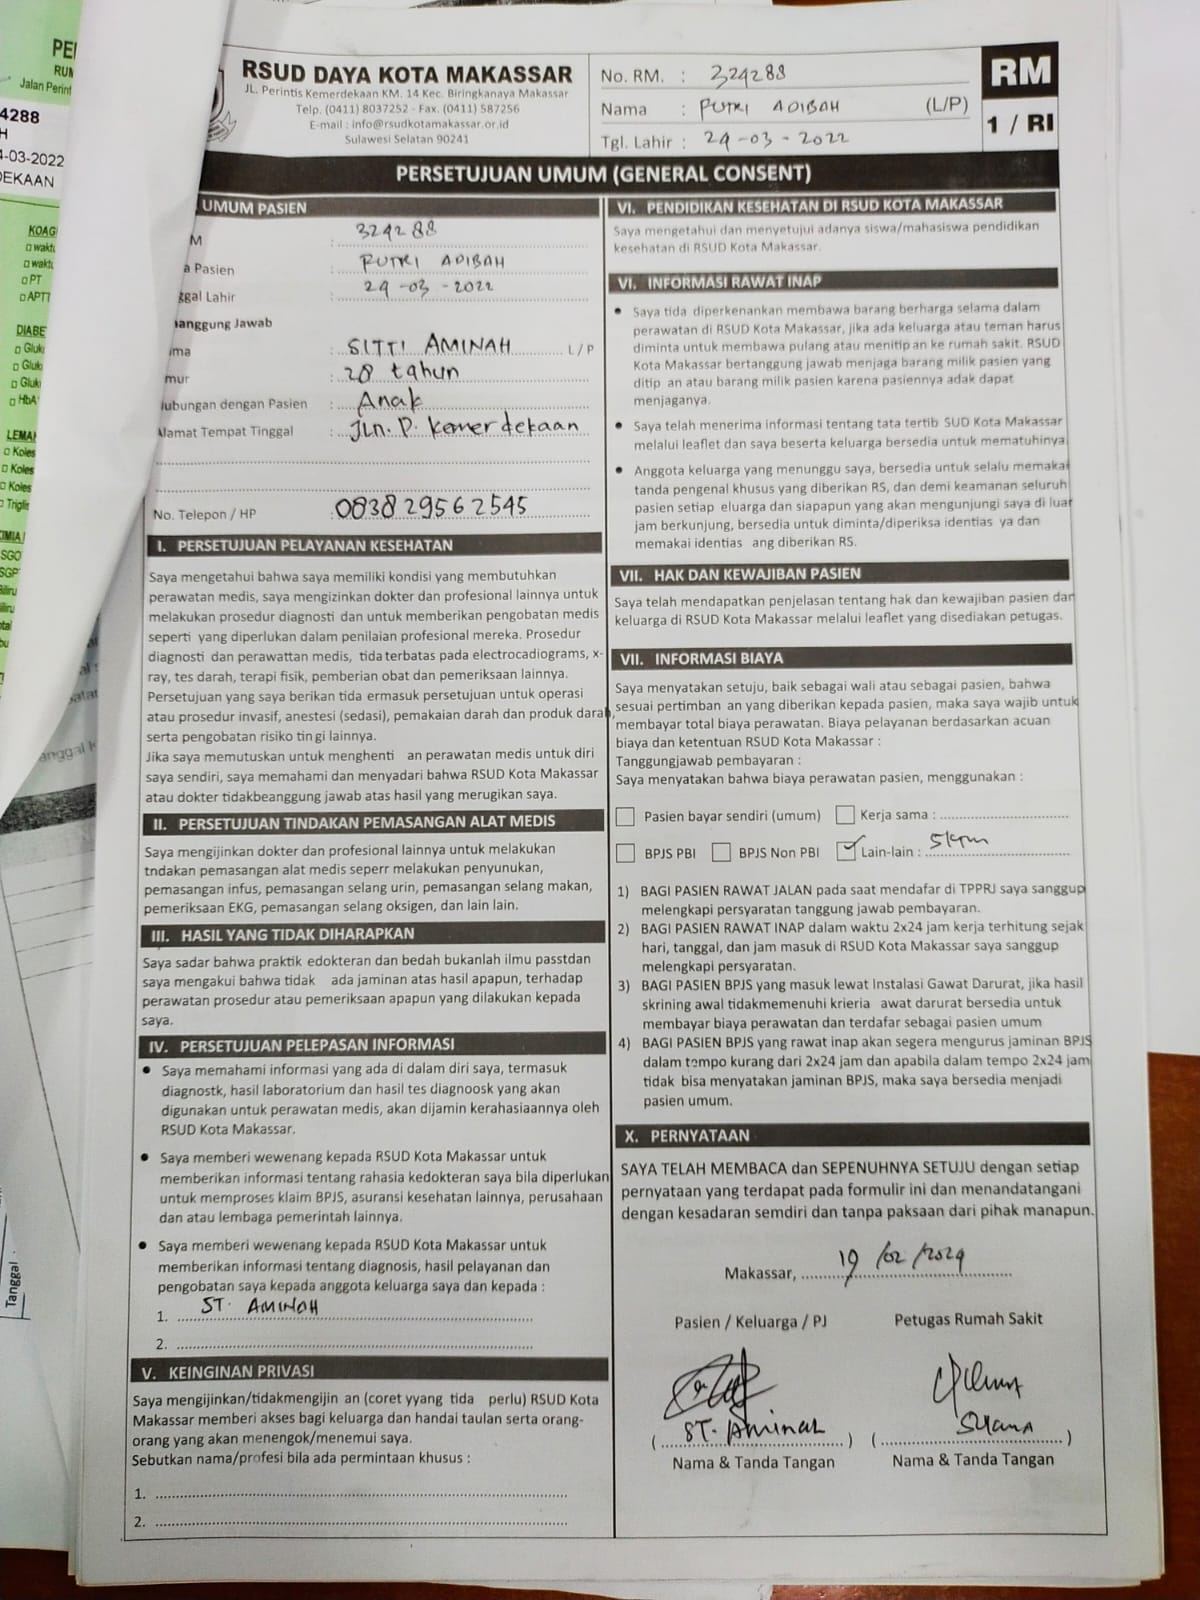 PE
RUM
Jalan Perint
4288
H
4-03-2022
DEKAAN
KOAG
waktu
waktu
PT
APTT
DIABE
Gluk
Gluk
Gluk
HbA
LEMA
Koles
Koles
Koles
Triglis
KIMIA
SGO
SGP
anggal K
Tanggal :
RSUD DAYA KOTA MAKASSAR
JL. Perintis Kemerdekaan KM. 14 Kec. Biringkanaya Makassar
Telp. (0411) 8037252 - Fax. (0411) 587256
E-mail : info@rsudkotamakassar.or.id
Sulawesi Selatan 90241
No. RM. : 324288
Nama : PUTRI ADIBAH (L/P)
Tgl. Lahir : 24-03-2022
RM
1 / RI
PERSETUJUAN UMUM (GENERAL CONSENT)
UMUM PASIEN
M : 324288
a Pasien : PUTRI ADIBAH
ggal Lahir : 24-03-2022
anggung Jawab
ma : SITTI AMINAH L/P
mur : 28 tahun
ubungan dengan Pasien : Anak
Alamat Tempat Tinggal : Jln. P. Kemerdekaan
No. Telepon / HP : 083829562545
I. PERSETUJUAN PELAYANAN KESEHATAN
Saya mengetahui bahwa saya memiliki kondisi yang membutuhkan
perawatan medis, saya mengizinkan dokter dan profesional lainnya untuk
melakukan prosedur diagnosti dan untuk memberikan pengobatan medis
seperti yang diperlukan dalam penilaian profesional mereka. Prosedur
diagnosti dan perawattan medis, tida terbatas pada electrocadiograms, x-
ray, tes darah, terapi fisik, pemberian obat dan pemeriksaan lainnya.
Persetujuan yang saya berikan tida ermasuk persetujuan untuk operasi
atau prosedur invasif, anestesi (sedasi), pemakaian darah dan produk darah,
serta pengobatan risiko tin gi lainnya.
Jika saya memutuskan untuk menghenti an perawatan medis untuk diri
saya sendiri, saya memahami dan menyadari bahwa RSUD Kota Makassar
atau dokter tidakbeanggung jawab atas hasil yang merugikan saya.
II. PERSETUJUAN TINDAKAN PEMASANGAN ALAT MEDIS
Saya mengijinkan dokter dan profesional lainnya untuk melakukan
tndakan pemasangan alat medis seperr melakukan penyunukan,
pemasangan infus, pemasangan selang urin, pemasangan selang makan,
pemeriksaan EKG, pemasangan selang oksigen, dan lain lain.
III. HASIL YANG TIDAK DIHARAPKAN
Saya sadar bahwa praktik edokteran dan bedah bukanlah ilmu passtdan
saya mengakui bahwa tidak ada jaminan atas hasil apapun, terhadap
perawatan prosedur atau pemeriksaan apapun yang dilakukan kepada
saya.
IV. PERSETUJUAN PELEPASAN INFORMASI
• Saya memahami informasi yang ada di dalam diri saya, termasuk
diagnostk, hasil laboratorium dan hasil tes diagnoosk yang akan
digunakan untuk perawatan medis, akan dijamin kerahasiaannya oleh
RSUD Kota Makassar.
• Saya memberi wewenang kepada RSUD Kota Makassar untuk
memberikan informasi tentang rahasia kedokteran saya bila diperlukan
untuk memproses klaim BPJS, asuransi kesehatan lainnya, perusahaan
dan atau lembaga pemerintah lainnya.
• Saya memberi wewenang kepada RSUD Kota Makassar untuk
memberikan informasi tentang diagnosis, hasil pelayanan dan
pengobatan saya kepada anggota keluarga saya dan kepada :
1. ST. AMINAH
2.
V. KEINGINAN PRIVASI
Saya mengijinkan/tidakmengijin an (coret yyang tida perlu) RSUD Kota
Makassar memberi akses bagi keluarga dan handai taulan serta orang-
orang yang akan menengok/menemui saya.
Sebutkan nama/profesi bila ada permintaan khusus :
1.
2.
VI. PENDIDIKAN KESEHATAN DI RSUD KOTA MAKASSAR
Saya mengetahui dan menyetujui adanya siswa/mahasiswa pendidikan
kesehatan di RSUD Kota Makassar.
VI. INFORMASI RAWAT INAP
• Saya tida diperkenankan membawa barang berharga selama dalam
perawatan di RSUD Kota Makassar, jika ada keluarga atau teman harus
diminta untuk membawa pulang atau menitip an ke rumah sakit. RSUD
Kota Makassar bertanggung jawab menjaga barang milik pasien yang
ditip an atau barang milik pasien karena pasiennya adak dapat
menjaganya.
• Saya telah menerima informasi tentang tata tertib SUD Kota Makassar
melalui leaflet dan saya beserta keluarga bersedia untuk mematuhinya
• Anggota keluarga yang menunggu saya, bersedia untuk selalu memakai
tanda pengenal khusus yang diberikan RS, dan demi keamanan seluruh
pasien setiap eluarga dan siapapun yang akan mengunjungi saya di luar
jam berkunjung, bersedia untuk diminta/diperiksa identias ya dan
memakai identias ang diberikan RS.
VII. HAK DAN KEWAJIBAN PASIEN
Saya telah mendapatkan penjelasan tentang hak dan kewajiban pasien dan
keluarga di RSUD Kota Makassar melalui leaflet yang disediakan petugas.
VII. INFORMASI BIAYA
Saya menyatakan setuju, baik sebagai wali atau sebagai pasien, bahwa
sesuai pertimban an yang diberikan kepada pasien, maka saya wajib untuk
membayar total biaya perawatan. Biaya pelayanan berdasarkan acuan
biaya dan ketentuan RSUD Kota Makassar :
Tanggungjawab pembayaran :
Saya menyatakan bahwa biaya perawatan pasien, menggunakan :
Pasien bayar sendiri (umum) Kerja sama :
BPJS PBI BPJS Non PBI Lain-lain : Sktm
1) BAGI PASIEN RAWAT JALAN pada saat mendaftar di TPPRJ saya sanggup
melengkapi persyaratan tanggung jawab pembayaran.
2) BAGI PASIEN RAWAT INAP dalam waktu 2x24 jam kerja terhitung sejak
hari, tanggal, dan jam masuk di RSUD Kota Makassar saya sanggup
melengkapi persyaratan.
3) BAGI PASIEN BPJS yang masuk lewat Instalasi Gawat Darurat, jika hasil
skrining awal tidakmemenuhi krieria awat darurat bersedia untuk
membayar biaya perawatan dan terdafar sebagai pasien umum
4) BAGI PASIEN BPJS yang rawat inap akan segera mengurus jaminan BPJS
dalam tempo kurang dari 2x24 jam dan apabila dalam tempo 2x24 jam
tidak bisa menyatakan jaminan BPJS, maka saya bersedia menjadi
pasien umum.
X. PERNYATAAN
SAYA TELAH MEMBACA dan SEPENUHNYA SETUJU dengan setiap
pernyataan yang terdapat pada formulir ini dan menandatangani
dengan kesadaran semdiri dan tanpa paksaan dari pihak manapun.
Makassar, 19/02/2024
Pasien / Keluarga / PJ Petugas Rumah Sakit
( ST. Aminah ) ( )
Nama & Tanda Tangan Nama & Tanda Tangan